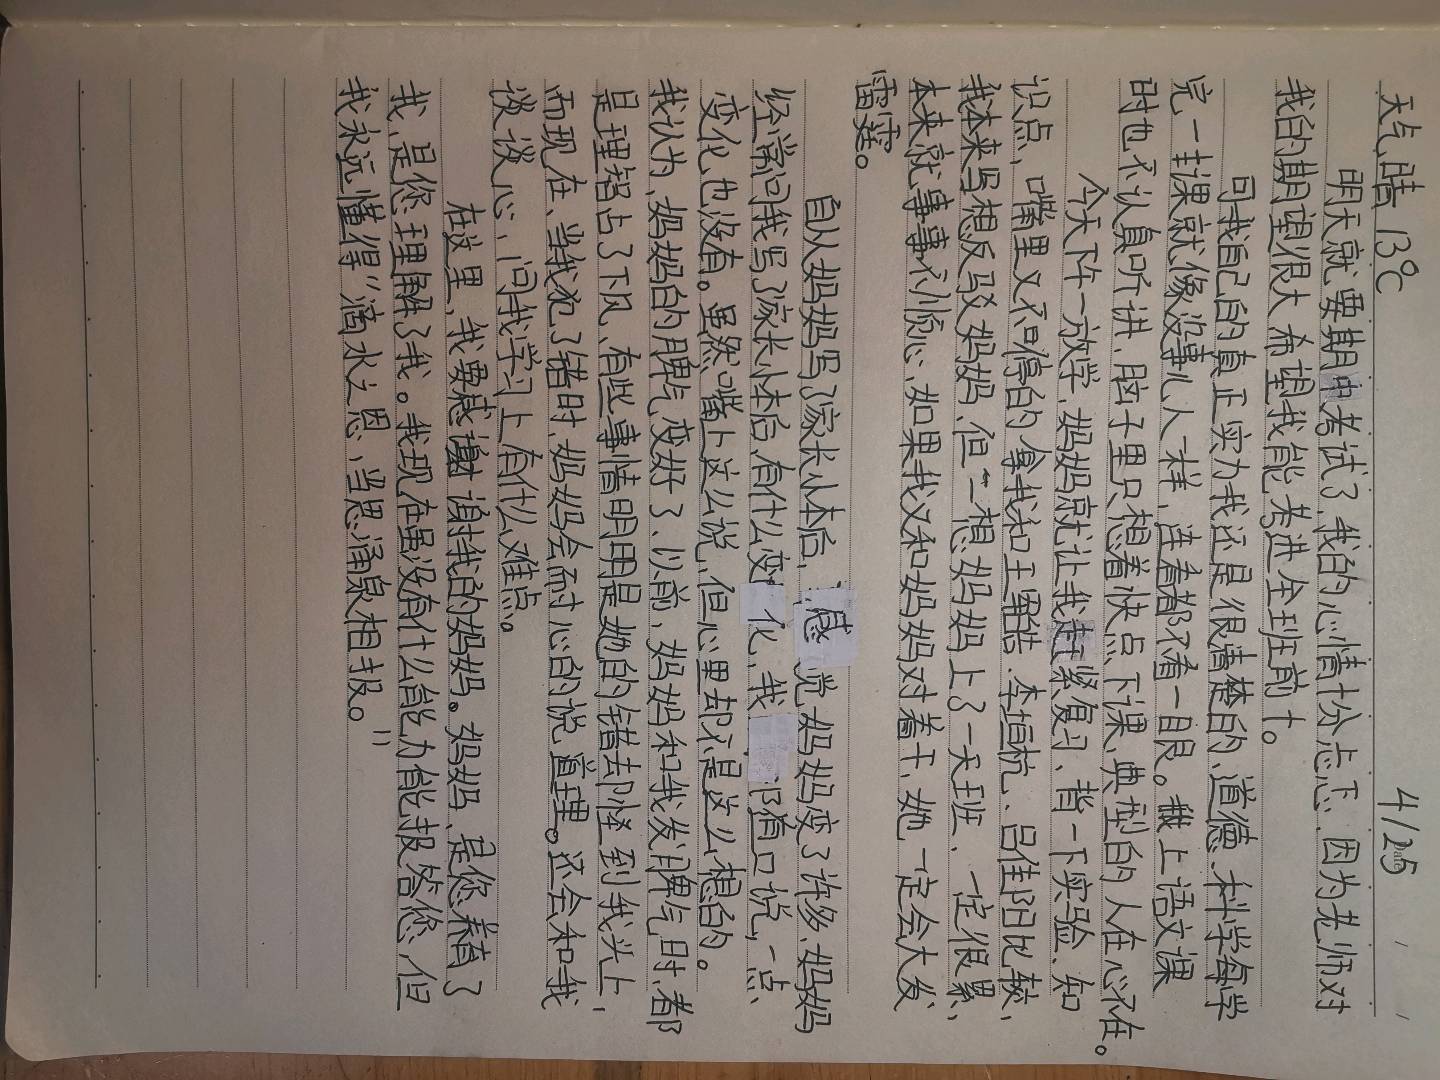 4/25
天气晴 13℃
明天就要期中考试了,我的心情十分忐忑、因为老师对
我的期望很大,希望我能考进全班前十。
可我自己的真正实力我还是很清楚的、道德、科学每学
完一封课就像没事儿人一样,连看都不看一眼。上语文课
时也不认真听讲、脑子里只想着快点下课、典型的人在心不在。
今天下午一放学,妈妈就让我赶紧复习、背一下实验、知
识点,嘴里又不停的拿我和王 李垣杭、吕佳阳比较,
我本来写想反驳妈妈、但一想妈妈上了一天班、一定很累,
本来就事事不顺心、如果我又和妈妈对着干、她一定会大发
雷霆。
自从妈妈写了家长小本后,感觉妈妈变了许多、妈妈
经常问我写了家长小本后,有什么变化,我都随口说,一点
变化也没有。虽然嘴上这么说,但心里却不是这么想的。
我认为,妈妈的脾气变好了、以前,妈妈和我发脾气时,都
是理智占了下风、有些事情明明是她的错却怪到我头上,
而现在、当我犯了错时,妈妈会耐心的说道理。还会和我
谈谈心,问我学习上有什么难点。
在这里,我要感谢谢我的妈妈。妈妈、是您养育了
我,是您理解了我。我现在虽没有什么能力能报答您,但
我永远懂得“滴水之恩、当思涌泉相报。”